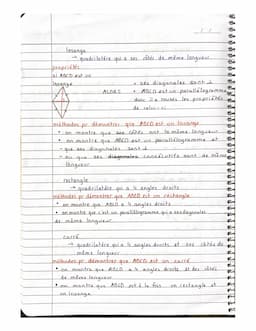 losange
→ quadrilatère qui a ses côtés de même longueur.
propriétés
si ABCD est un
losange
ALORS
• ses diagonales sont ⊥
• ABCD est un parallélogramme
donc il a toutes les propriétés
de celui-ci
méthodes pr démontrer que ABCD est un losange
• on montre que ses côtés ont la même longueur
• on montre que ABCD est un parallélogramme et
- que ses diagonales sont ⊥
- ou que ses diagonales consécutifs sont de même
longueur
rectangle
→ quadrilatère qui a 4 angles droits
méthodes pr démontrer que ABCD est un rectangle
• on montre que ABCD a 4 angles droits
• on montre que c'est un parallélogramme qui a ses diagonales
de même longueur
carré
→ quadrilatère qui a 4 angles droits et ses côtés de
même longueur
méthodes pr démontrer que ABCD est un carré
• on montre que ABCD a 4 angles droits et des côtés
de même longueur
• on montre que ABCD est à la fois un rectangle et
un losange